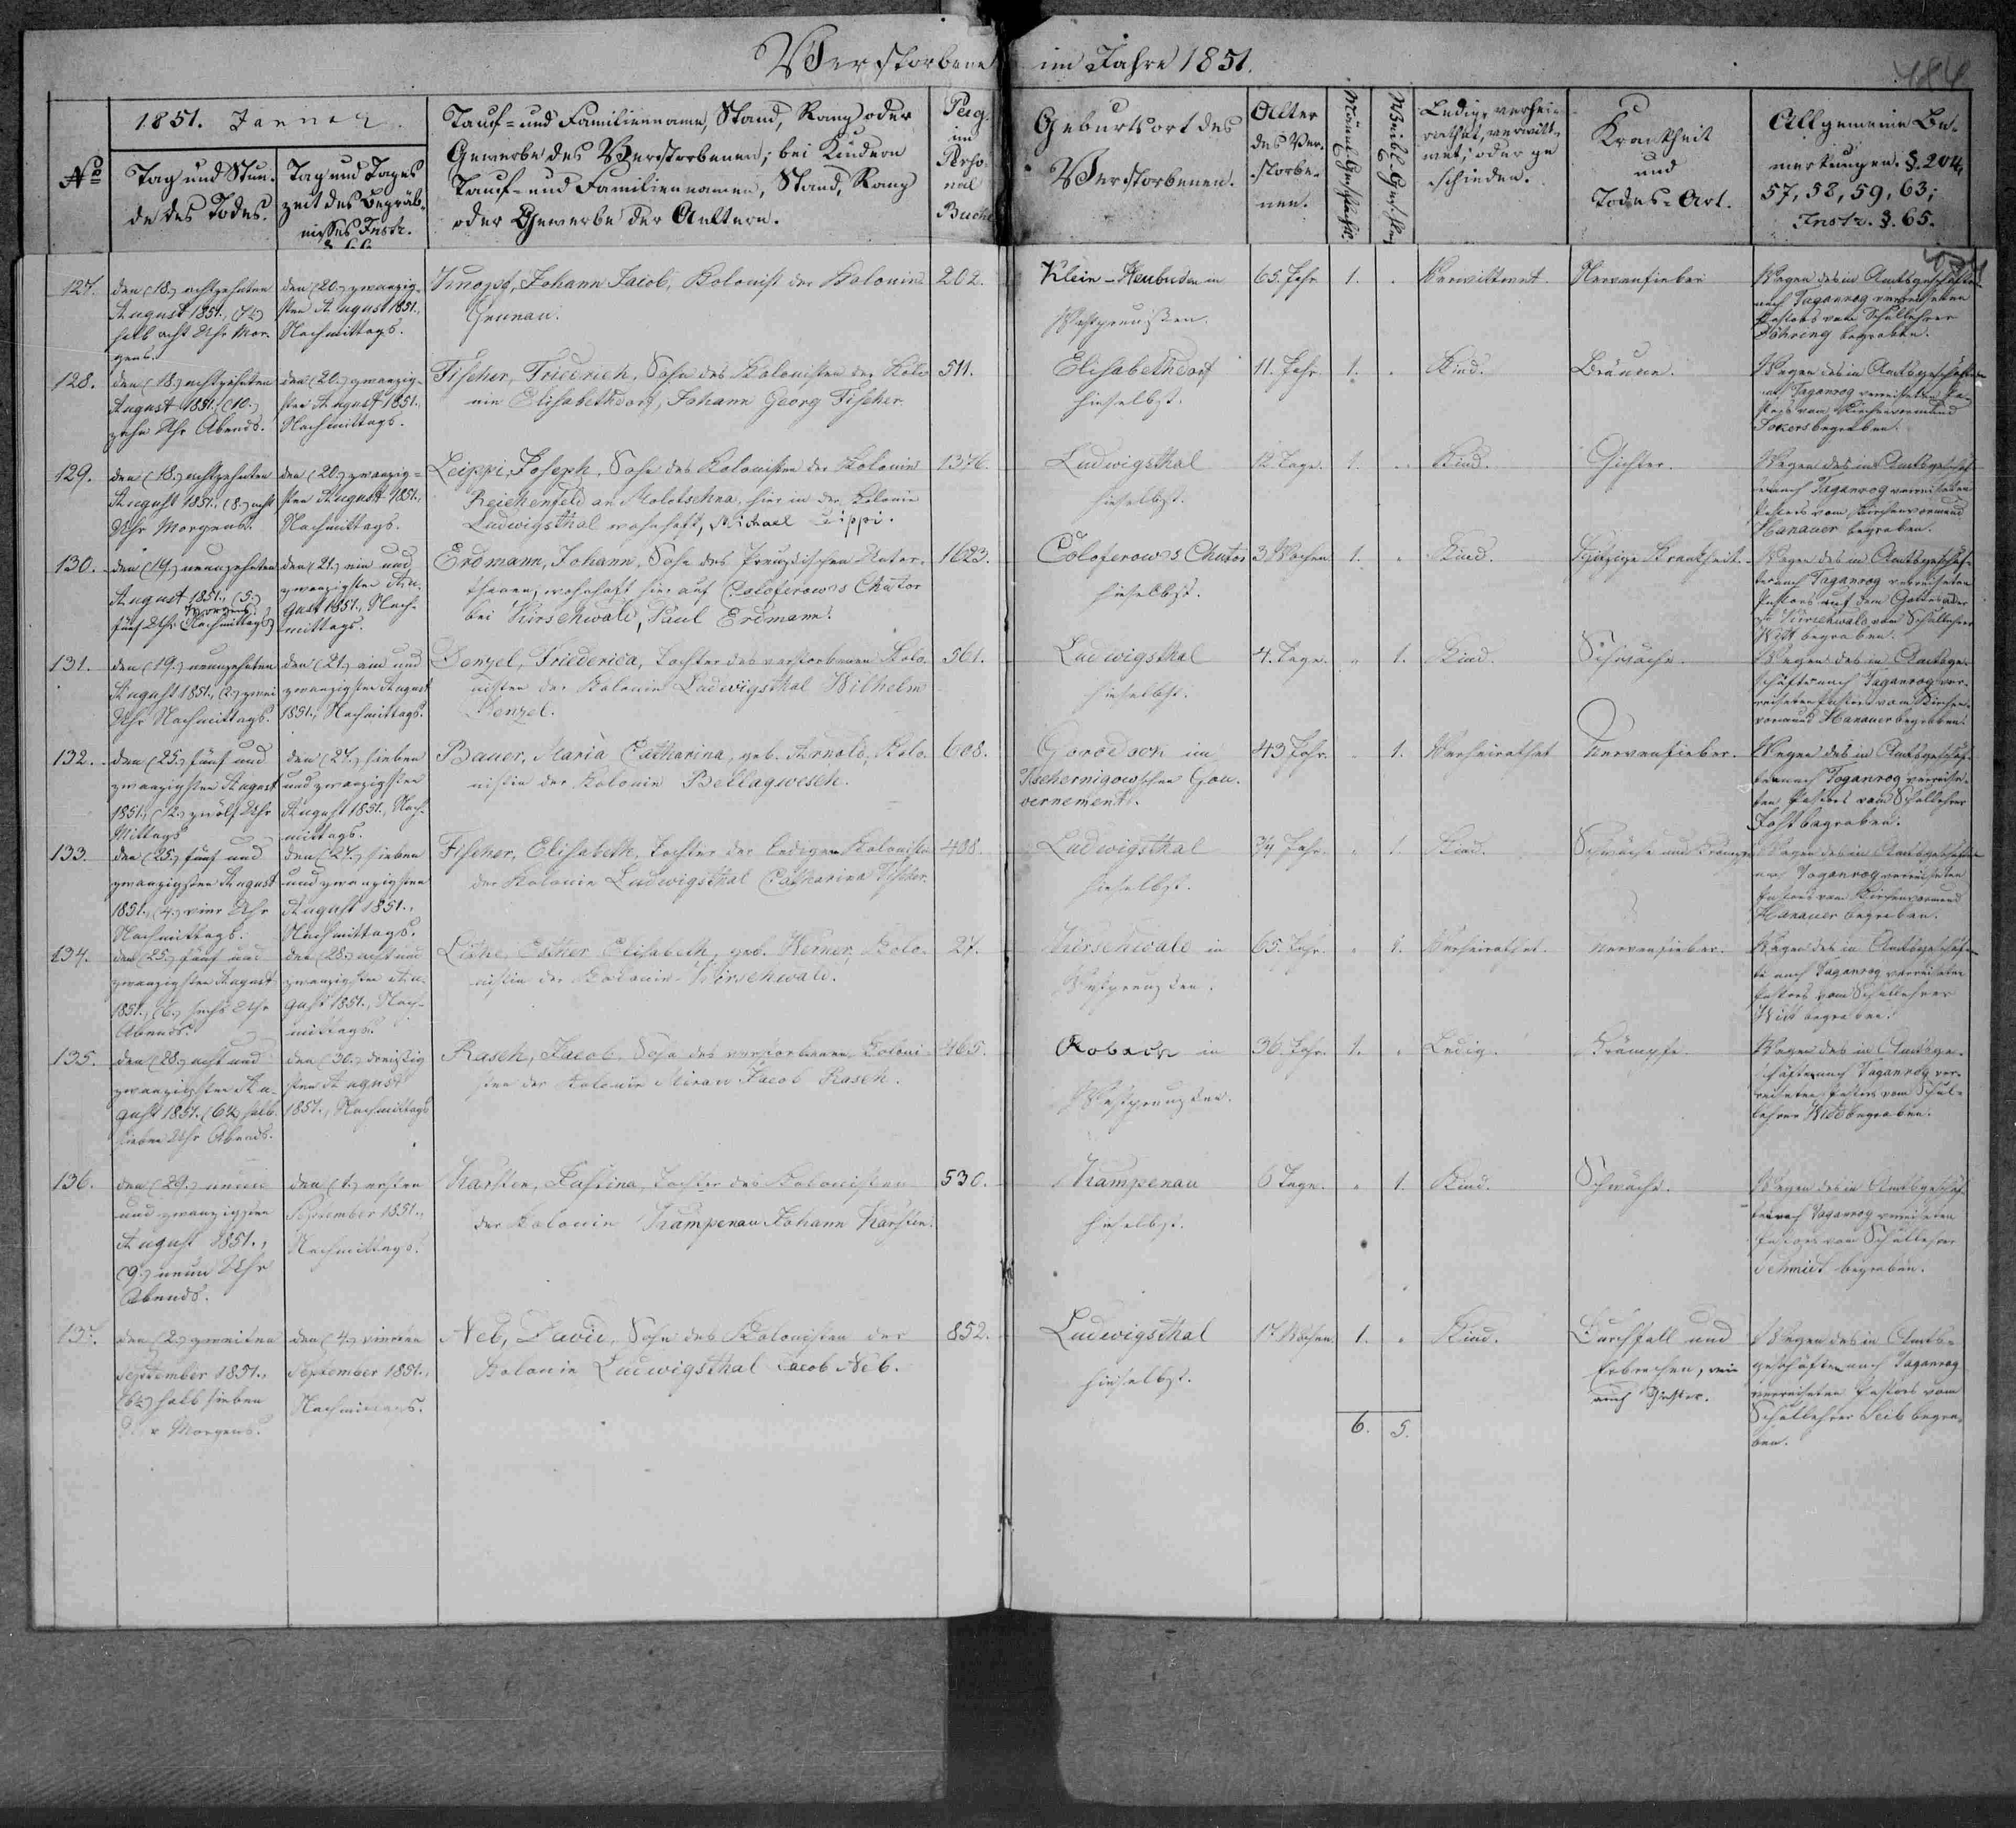 Verstorbene im Jahre 1851.
184
No
1851. Janner.
Tag und Stun-
de des Todes.
Tag und Tages
zeit des Begräb-
nisses Instr.
Tauf- und Familienname, Stand, Rang oder
Gewerbe des Verstorbenen; bei Kindern
Tauf- und Familiennamen, Stand, Rang
oder Gewerbe der Aeltern.
Pag.
im
Perso
nal
Buche
Geburtsort des
Verstorbenen.
Alter
des Ver-
storbe-
nen.
Männl. Geschlecht.
Weibl. Geschlecht
Ledig, verhei-
rathet, verwitt-
wet, oder ge
schieden.
Krankheit
und
Todes-Art.
Allgemeine Be-
merkungen. §. 204,
57, 58, 59, 63;
Instr. §. 65.
127.
den (18.) achtzehnten
August 1851., (7½)
halb acht Uhr Mor-
gens.
den (20.) zwanzig-
sten August 1851.,
Nachmittags.
Knopf, Johann Jacob, Kolonist der Kolonie
Grunau.
202.
Klein-Heubuden in
Westpreußen.
65. Jahr
1.
Verwittwet.
Nervenfieber
Wegen des in Amtsgeschäften
nach Taganrog verreiseten
Pastors vom Schullehrer
Döhring begraben.
128.
den (18.) achtzehnten
August 1851., (10.)
zehn Uhr Abends.
den (20.) zwanzig-
sten August 1851.,
Nachmittags.
Fischer, Friedrich, Sohn des Kolonisten der Kolo
nie Elisabethdorf, Johann Georg Fischer.
511.
Elisabethdorf
hieselbst.
11. Jahr.
1.
Kind.
Bräune.
Wegen des in Amtsgeschäften
nach Taganrog verreiseten Pa-
stors vom Kirchenvormund
begraben.
129.
den (18.) achtzehnten
August 1851., (8.) acht
Uhr Morgens.
den (20.) zwanzig-
sten August 1851.,
Nachmittags.
Leippi, Joseph, Sohn des Kolonisten der Kolonie
Reichenfeld an Molotschna, hier in der Kolonie
Ludwigsthal wohnhaft, Michael Leippi.
1376.
Ludwigsthal
hieselbst.
12. Tage.
1.
Kind.
Gichter.
Wegen des in Amtsgeschäf-
ten nach Taganrog verreiseten
Pastors vom Kirchenvormund
Hanauer begraben.
130.
den (19.) neunzehnten
August 1851., (5.)
Morgens.
fünf Uhr Nachmittags
den (21.) ein und
zwanzigsten Au-
gust 1851., Nach-
mittags.
Erdmann, Johann, Sohn des Preußischen Unter-
thanen, wohnhaft hier auf Coloferow's Chutor
bei Kirschwald, Paul Erdmann.
1623.
Coloferow's Chutor
hieselbst.
3 Wochen
1.
Kind.
Hitzige Krankheit.
Wegen des in Amtsgeschäf-
ten nach Taganrog verreiseten
Pastors auf dem Gottesacker
zu Kirschwald vom Schullehrer
Witt begraben.
131.
den (19.) neunzehnten
August 1851., (2.) zwei
Uhr Nachmittags.
den (21.) ein und
zwanzigsten August
1851., Nachmittags.
Denzel, Friederica, Tochter des verstorbenen Kolo-
nisten der Kolonie Ludwigsthal Wilhelm
Denzel.
561.
Ludwigsthal
hieselbst.
4. Tage.
1.
Kind.
Schwäche.
Wegen des in Amtsge-
schäften nach Taganrog ver-
reiseten Pastors vom Kirchen-
vormund Hanauer begraben.
132.
den (25.) fünf und
zwanzigsten August
1851., (12.) zwölf Uhr
Mittags
den (27.) sieben
und zwanzigsten
August 1851., Nach-
mittags.
Bauer, Maria Catharina, geb. Arnold, Kolo-
nistin der Kolonie Bellagwesch.
608.
Gorodock im
Tschernigowschen Gou-
vernement.
43 Jahr.
1.
Verheirathet
Nervenfieber.
Wegen des in Amtsgeschäf-
ten nach Taganrog verreise-
ten Pastors vom Schullehrer
Jost begraben.
133.
den (25.) fünf und
zwanzigsten August
1851., (4.) vier Uhr
Nachmittags.
den (27.) sieben
und zwanzigsten
August 1851.,
Nachmittags.
Fischer, Elisabeth, Tochter der ledigen Kolonistin
der Kolonie Ludwigsthal Catharina Fischer.
408.
Ludwigsthal
hieselbst.
¾ Jahr.
1.
Kind.
Schwäche und Krämpfe
Wegen des in Amtsgeschäften
nach Taganrog verreiseten
Pastors vom Kirchenvormund
Hanauer begraben.
134.
den (25.) fünf und
zwanzigsten August
1851., (6.) sechs Uhr
Abends.
den (28.) acht und
zwanzigsten Au-
gust 1851., Nach-
mittags.
Esther Elisabeth, geb. Werner, Kolo-
nistin der Kolonie Kirschwald.
27.
Kirschwald in
Westpreußen.
65. Jahr.
1.
Verheirathet.
Nervenfieber.
Wegen des in Amtsgeschäf-
te nach Taganrog verreiseten
Pastors vom Schullehrer
Witt begraben.
135.
den (28.) acht und
zwanzigsten Au-
gust 1851. (6½) halb
sieben Uhr Abends.
den (30.) dreißig
sten August
1851., Nachmittags
Rasch, Jacob, Sohn des verstorbenen Koloni-
sten der Kolonie Mirau Jacob Rasch.
465.
Robach in
Westpreußen.
36. Jahr.
1.
Ledig.
Krämpfe.
Wegen des in Amtsge-
schäften nach Taganrog ver-
reiseten Pastors vom Schul-
lehrer Witt begraben.
136.
den (29.) neun
und zwanzigsten
August 1851.,
(9.) neun Uhr
Abends.
den (1.) ersten
September 1851.,
Nachmittags.
Karsten, Justina, Tochter des Kolonisten
der Kolonie Kampenau Johann Karsten.
530.
Kampenau
hieselbst.
6 Tage.
1.
Kind.
Schwäche.
Wegen des in Amtsgeschäf-
ten nach Taganrog verreiseten
Pastors vom Schullehrer
Schmidt begraben.
137.
den (2.) zweiten
September 1851.,
(6½) halb sieben
Uhr Morgens.
den (4.) vierten
September 1851.,
Nachmittags.
Neb, David, Sohn des Kolonisten der
Kolonie Ludwigsthal Jacob Neb.
852.
Ludwigsthal
hieselbst.
17 Wochen.
1.
Kind.
Durchfall und
Erbrechen, wie
auch Gichter.
Wegen des in Amts-
geschäften nach Taganrog
verreiseten Pastors vom
Schullehrer Seib begra-
ben.
6.
5.